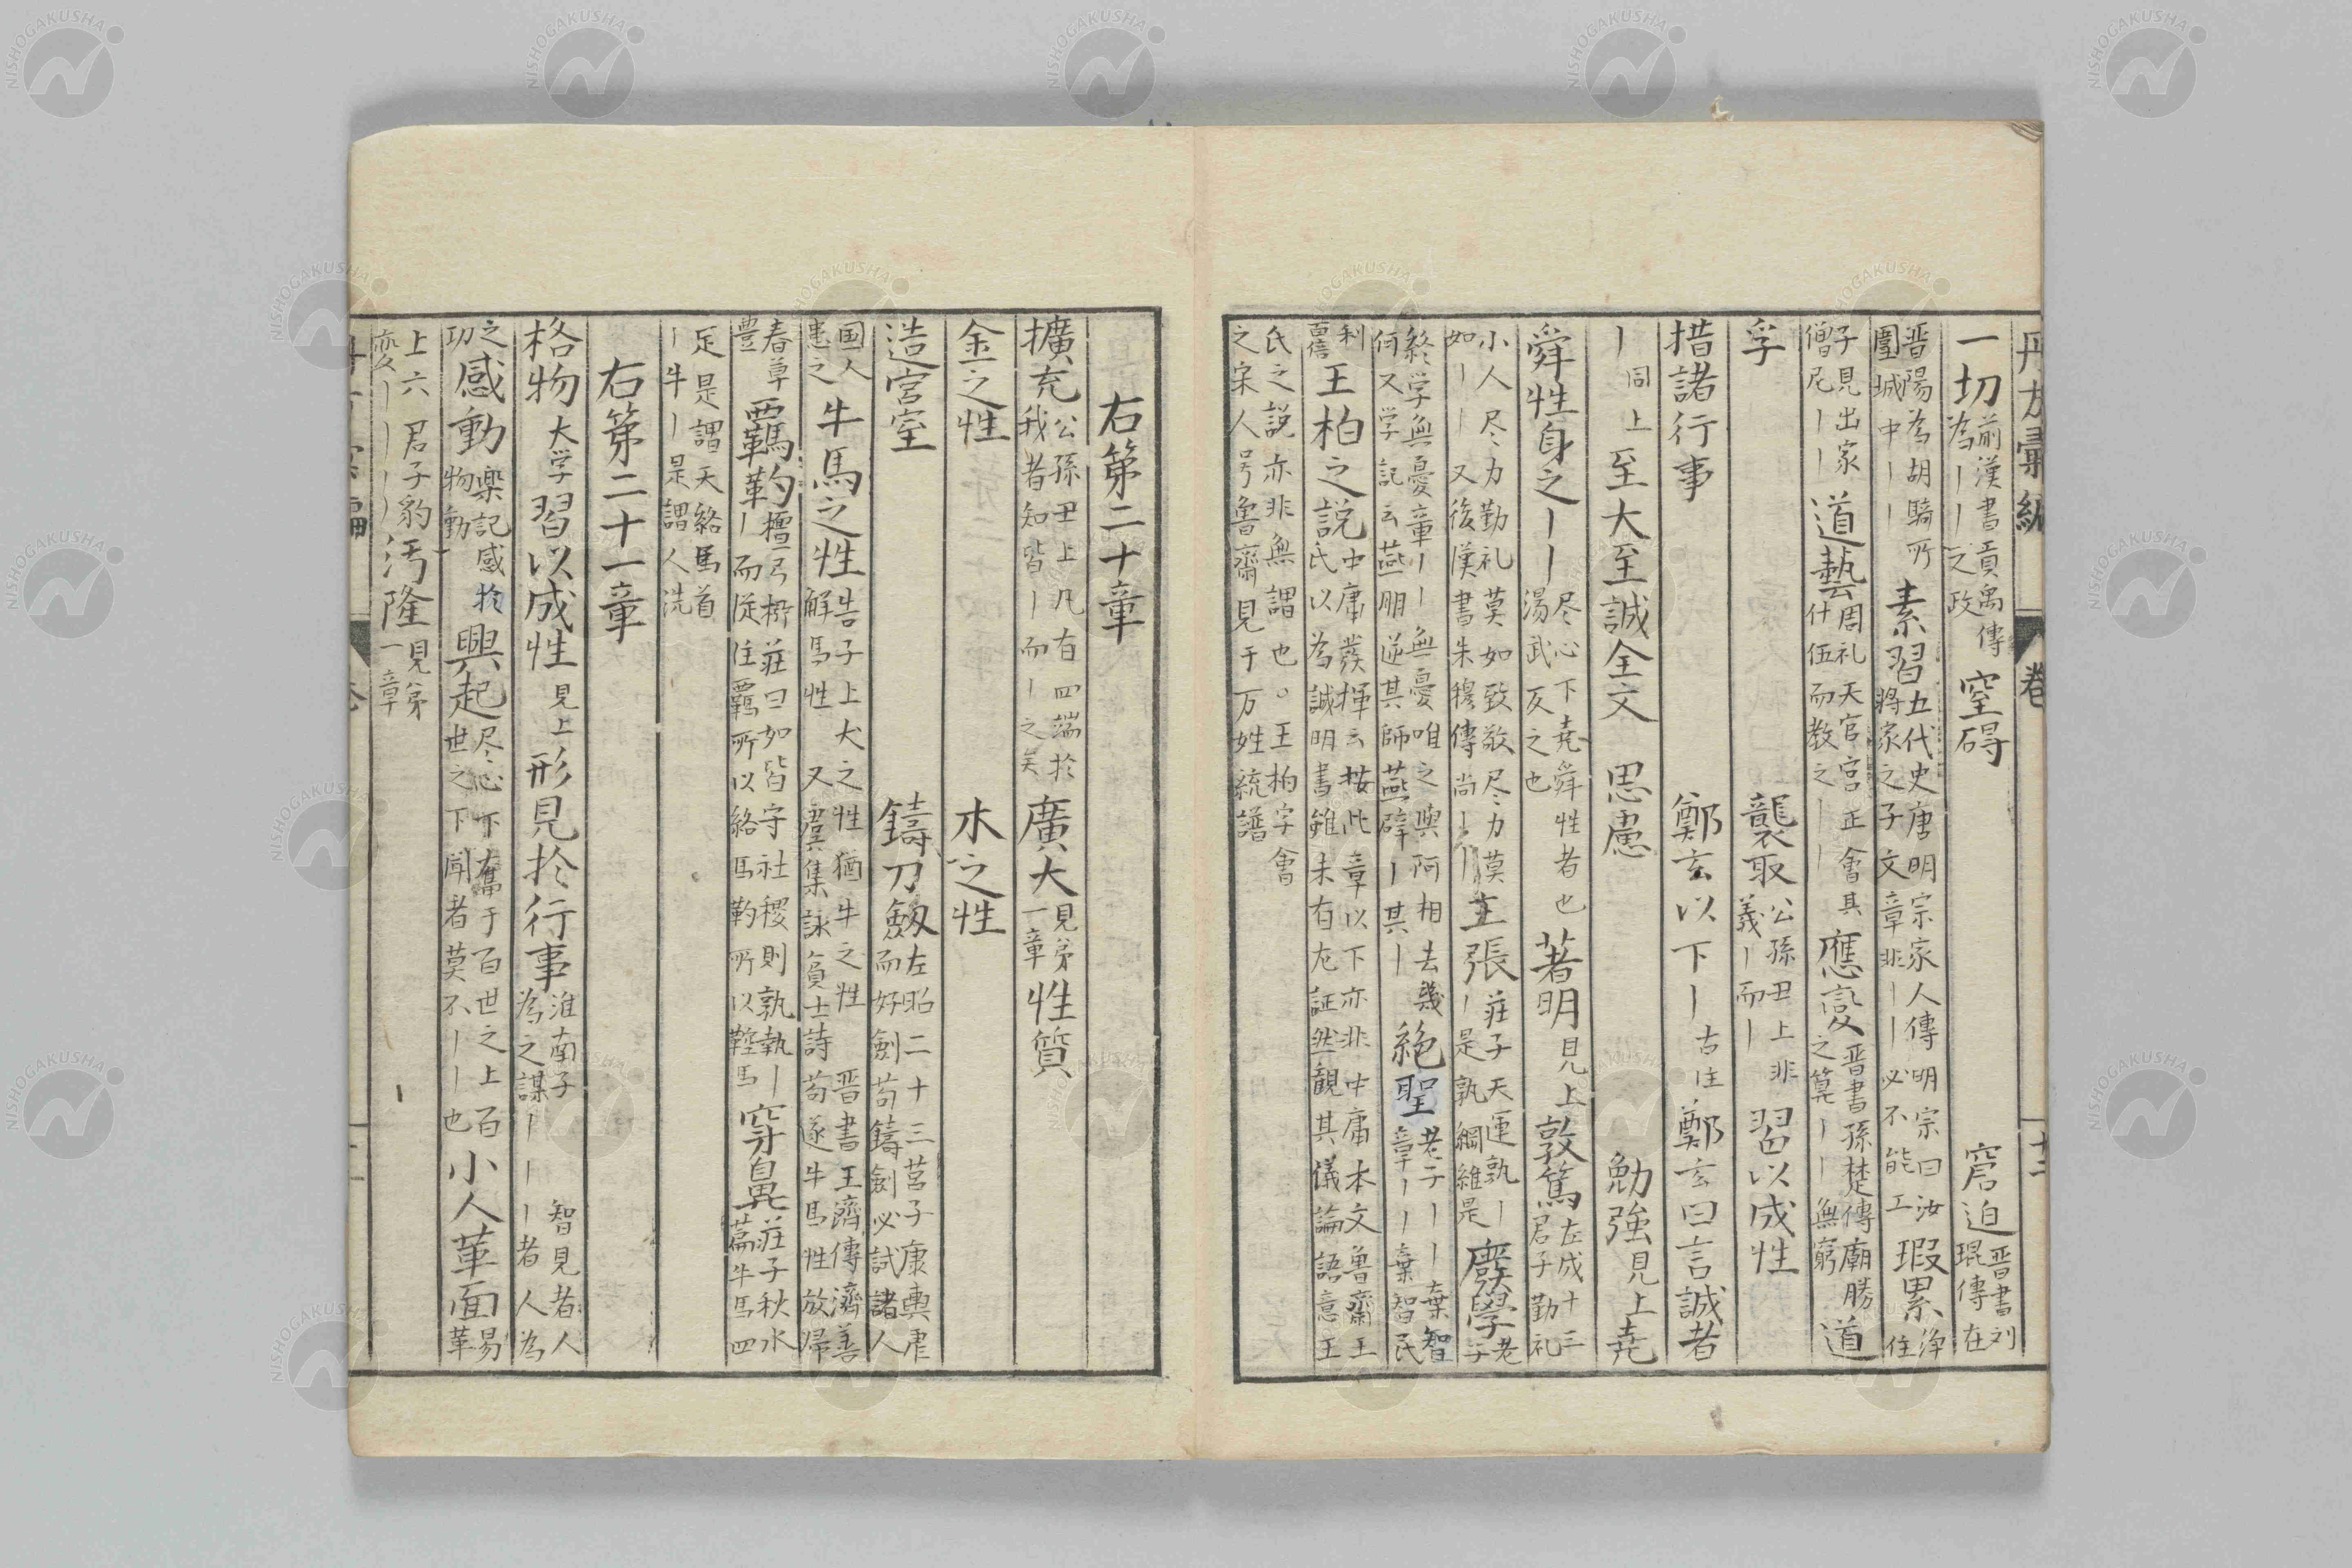 一切 前漢書貢禹傳 為丨丨之政 窒碍 窘迫 晋書刘琨傳在
晋陽為胡騎所圍城中丨丨 素習 五代史唐明宗家人傳明宗曰汝將家之子文章非丨丨必不能工 瑕累 浄住
子見出家僧尼丨丨 道藝 周礼天官宮正會其什伍而教之丨丨 應変 晋書孫楚傳廟勝之算丨丨無窮 道
孚 襲取 公孫丑上非義丨而丨 習以成性
措諸行事 鄭玄以下丨 古注鄭玄曰言誠者
丨同上 至大至誠全文 思慮 勉強 見上 尭
舜性身之丨丨 尽心下尭舜性者也湯武反之也 著明 見上 敦篤 左成十三君子勤礼
小人尽力勤礼莫如致敬尽力莫如丨丨 又後漢書朱穆傳尚丨丨 主張 莊子天運孰丨丨是孰綱維是 廢學 老子
終学無憂章丨丨無憂唯之與阿相去幾何又学記云燕朋逆其師燕辟丨其丨 絶聖 老子丨丨棄智章丨丨棄智民
利百倍 王柏之説 中庸𤼵揮云按此章以下亦非中庸本文魯齋王氏以為誠明書雖未有左証然観其儀論語意王
氏之説亦非無謂也。王柏字會之宋人号魯齋見于万姓統譜
右第二十章
擴充 公孫丑上凡有四端於我者知皆丨而丨之矣 廣大 見第一章 性質
金之性 木之性
造宮室 鑄刀劔 左昭二十三莒子庚輿虐而好劍苟鑄劍必試諸人
国人患之 牛馬之性 告子上犬之性猶牛之性 晋書王濟傳濟善解馬性 又虞集詠負士詩苟遂牛馬性放歸
春草豊 羈靮 檀弓柳莊曰如皆守社稷則孰執丨丨而従注羈所以絡馬靮所以鞚馬 穿鼻 莊子秋水篇牛馬四
足是謂天絡馬首丨牛丨是謂人洗
右第二十一章
格物 大学 習以成性 見上 形見於行事 淮南子 智見者人為之謀丨丨丨者人為
之功 感動 楽記感於物動 興起 尽心下奮于百世之上百世之下聞者莫不丨丨也 小人革面 易革
上六君子豹変丨丨丨丨 汚隆 見第一章